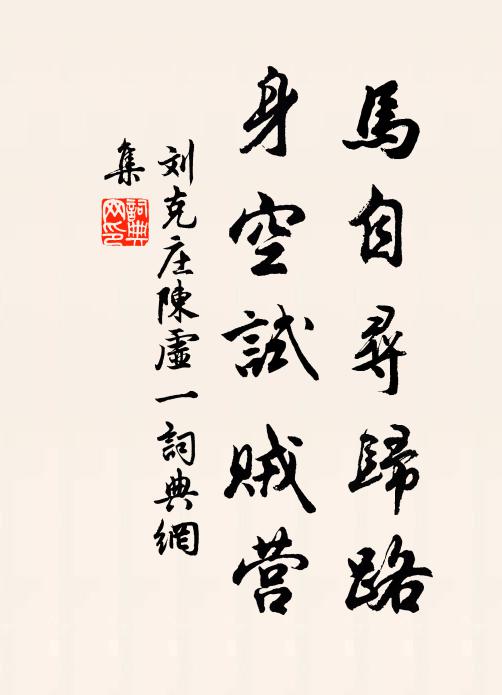 馬自尋歸路
身空試賊营
刘克庄陳虛一詞典網
集
詞典
网印